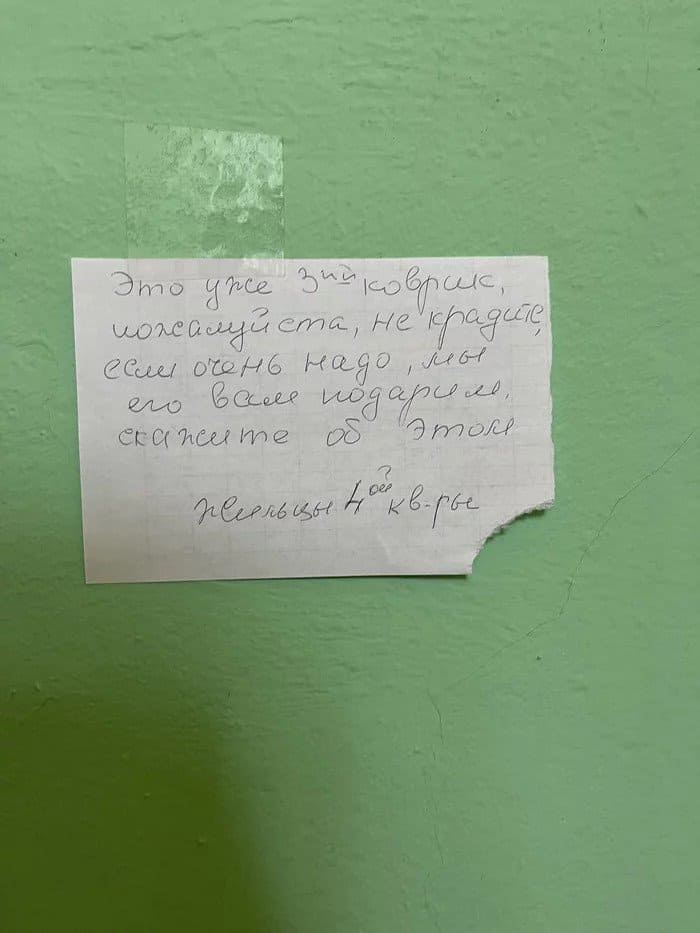 Это уже 3ий коврик,
пожалуйста, не крадите,
если очень надо, мы
его вам подарим,
скажите об этом
жильцы 4ой кв-ры